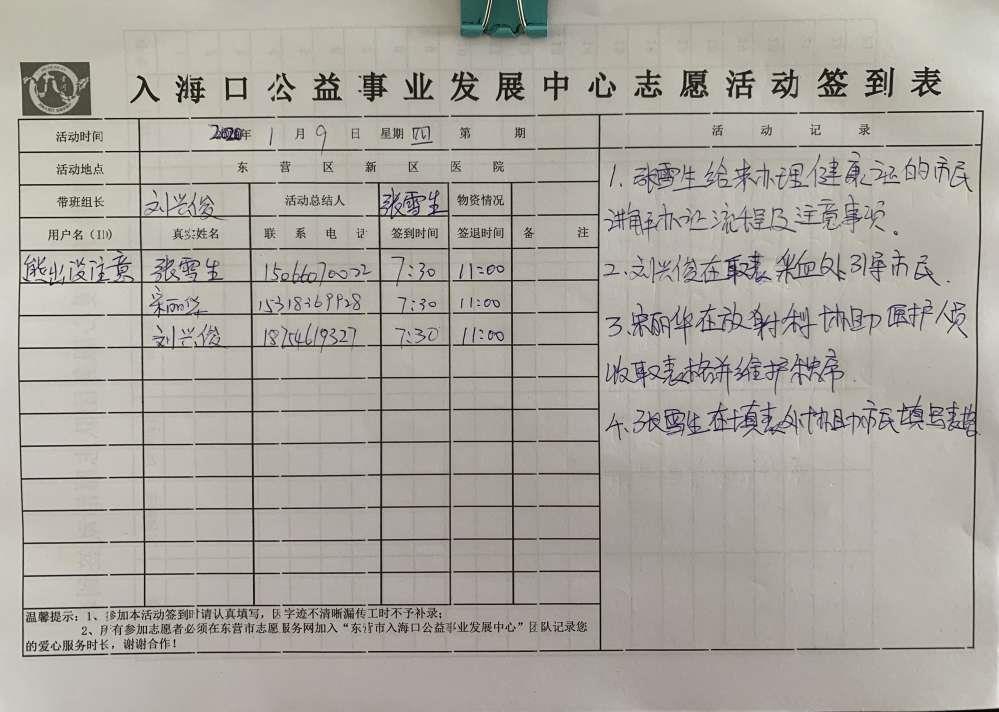 入海口公益事业发展中心志愿活动签到表
活动时间 2020年1月9日 星期四 第 期
活动地点 东营区新区医院
带班组长 刘兴俊 活动总结人 张雪生 物资情况
用户名(ID) 真实姓名 联系电话 签到时间 签退时间 备注
熊出没注意 张雪生 15066070022 7:30 11:00
宋丽华 15318369928 7:30 11:00
刘兴俊 18754619327 7:30 11:00
温馨提示:1、参加本活动签到时请认真填写,因字迹不清晰漏传工时不予补录;
2、所有参加志愿者必须在东营市志愿服务网加入“东营市入海口公益事业发展中心”团队记录您
的爱心服务时长,谢谢合作!
活动记录
1.张雪生给来办理健康证的市民
讲解办证流程及注意事项。
2.刘兴俊在取表采血处引导市民.
3.宋丽华在放射科协助医护人员
收取表格并维护秩序.
4.张雪生在填表处协助市民填写表格